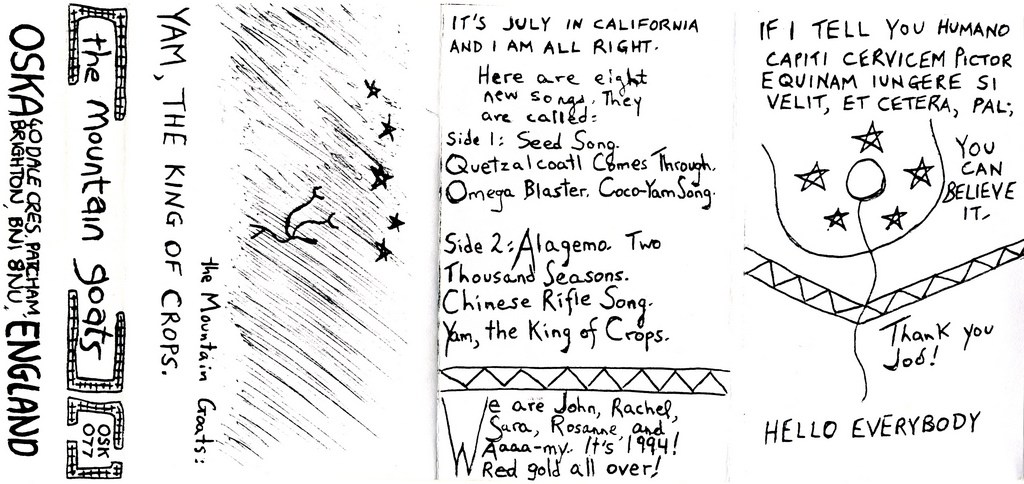 OSKA
40 DALE CRES. PATCHAM.
BRIGHTON, BN1 8NU, ENGLAND
the mountain goats
OSK
077
YAM, THE KING OF CROPS.
the Mountain Goats:
IT'S JULY IN CALIFORNIA
AND I AM ALL RIGHT.
Here are eight
new songs. They
are called:
Side 1: Seed Song.
Quetzalcoatl Comes Through.
Omega Blaster. Coco-Yam Song.
Side 2: Alagema. Two
Thousand Seasons.
Chinese Rifle Song.
Yam, the King of Crops.
We are John, Rachel,
Sara, Rosanne, and
Aaaa-my. It's 1994!
Red gold all over!
IF I TELL YOU HUMANO
CAPITI CERVICEM PICTOR
EQUINAM IUNGERE SI
VELIT, ET CETERA, PAL;
YOU
CAN
BELIEVE
IT.
Thank you
Job!
HELLO EVERYBODY